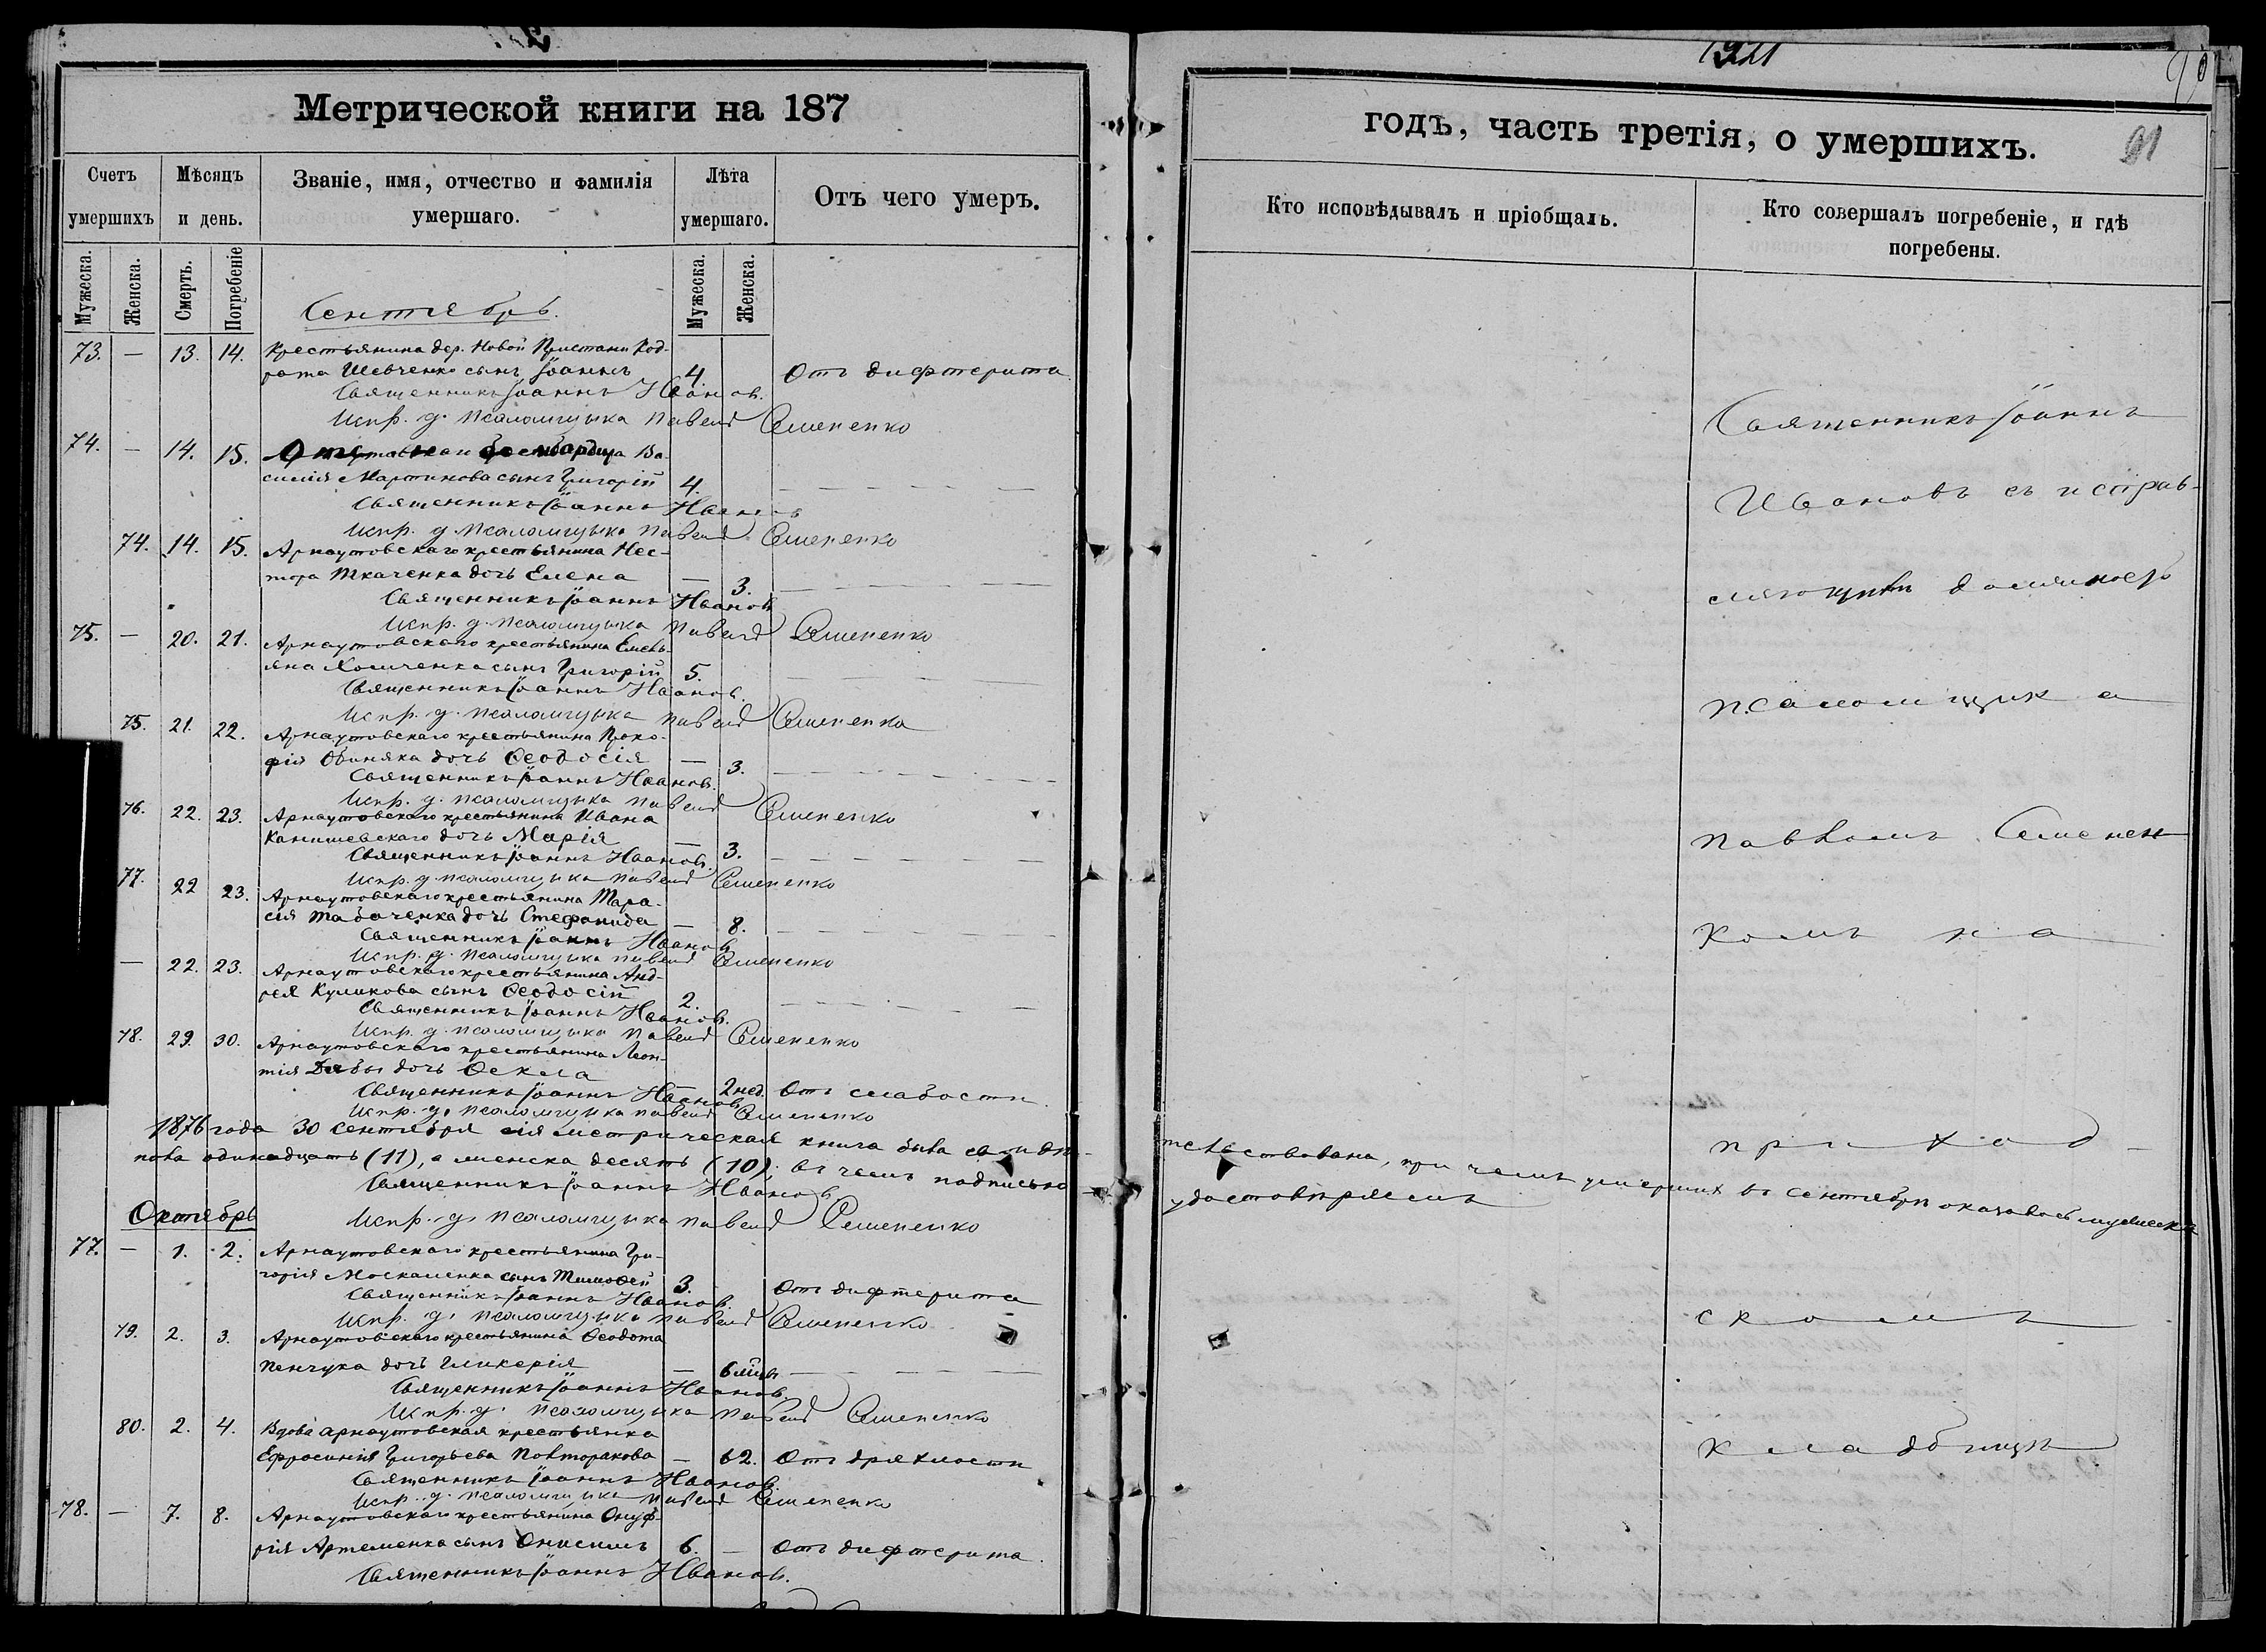 1921
90
Метрической книги на 187
годъ, часть третія, о умершихъ.
91
Счетъ умершихъ
Мѣсяцъ и день.
Званіе, имя, отчество и фамилія умершаго.
Лѣта умершаго.
Отъ чего умеръ.
Кто исповѣдывалъ и пріобщалъ.
Кто совершалъ погребеніе, и гдѣ погребены.
Мужеска.
Женска.
Смерть.
Погребеніе
Мужеска.
Женска.
Сентябрь.
73. — 13. 14. Крестьянина дер. Новой Пристани Код-
рата Шевченко сынъ Іоаннъ 4. Отъ дифтерита
Священникъ Іоаннъ Ивановъ.
Испр. д. псаломщика Павелъ Семененко
74. — 14. 15. бомбардира Ва-
силія Мартинова сынъ Григорій 4. — — —
Священникъ Іоаннъ Ивановъ
Испр. д. псаломщика Павелъ Семененко
74. 14. 15. Арнаутовскаго крестьянина Нес-
тора Ткаченка дочь Елена — 3. — — —
Священникъ Іоаннъ Ивановъ
Испр. д. псаломщика Павелъ Семененко
75. — 20. 21. Арнаутовскаго крестьянина Емель-
яна Хомченка сынъ Григорій 5. — — —
Священникъ Іоаннъ Ивановъ.
Испр. д. псаломщика Павелъ Семененко
75. 21. 22. Арнаутовскаго крестьянина Проко-
фія дочь Ѳеодосія — 3. — — —
Священникъ Іоаннъ Ивановъ.
Испр. д. псаломщика Павелъ Семененко
76. 22. 23. Арнаутовскаго крестьянина Ивана
Канишевскаго дочь Марія — 3. — — —
Священникъ Іоаннъ Ивановъ.
Испр. д. псаломщика Павелъ Семененко
77. 22 23. Арнаутовскаго крестьянина Тара-
сія Табаченка дочь Стефанида — 8. — — —
Священникъ Іоаннъ Ивановъ
Испр. д. псаломщика Павелъ Семененко
— 22. 23. Арнаутовскаго крестьянина Анд-
рея Куликова сынъ Ѳеодосій 2. — — —
Священникъ Іоаннъ Ивановъ.
Испр. д. псаломщика Павелъ Семененко
78. 29. 30. Арнаутовскаго крестьянина Леон-
тія дочь Ѳекла — 2 нед. Отъ слабости.
Священникъ Іоаннъ Ивановъ
Испр. д. псаломщика Павелъ Семененко
1876 года 30 Сентября сія метрическая книга была свидѣ-
тельствована, при чемъ умершихъ въ Сентябрѣ оказалось мужеска
пола одинадцать (11), а женска десять (10); въ чемъ подписью
удостовѣряемъ
Священникъ Іоаннъ Ивановъ.
Испр. д. псаломщика Павелъ Семененко
Октябрь
77. — 1. 2. Арнаутовскаго крестьянина Гри-
горія Москаленка сынъ Тимоѳей 3. Отъ дифтерита
Священникъ Іоаннъ Ивановъ.
Испр. д. псаломщика Павелъ Семененко
79. 2. 3. Арнаутовскаго крестьянина Ѳеодота
Пенчука дочь Гликерія — 6 мѣц. — — —
Священникъ Іоаннъ Ивановъ.
Испр. д. псаломщика Павелъ Семененко
80. 2. 4. Вдова арнаутовская крестьянка
Ефросинія Григорьева Полторакова — 62. Отъ дряхлости
Священникъ Іоаннъ Ивановъ.
Испр. д. псаломщика Павелъ Семененко
78. — 7. 8. Арнаутовскаго крестьянина Онуф-
рія Артеменка сынъ Онисимъ 6. — Отъ дифтерита.
Священникъ Іоаннъ Ивановъ.
Священникъ Іоаннъ
Ивановъ съ исправ-
ляющимъ должность
псаломщика
Павломъ Семенен-
комъ на
приход-
скомъ
кладбищѣ